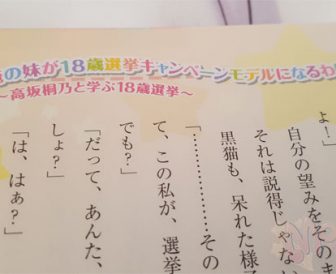 の妹が18歳選挙キャンペーンモデルになるわ
～高坂桐乃と学ぶ18歳選挙～
よ」
自分の望みをそのま
それは説得じゃな
黒猫も、呆れた様子
「…………その
て、この私が、選挙
でも?」
「だって、あんた、
しょ?」
「は、はぁ?」